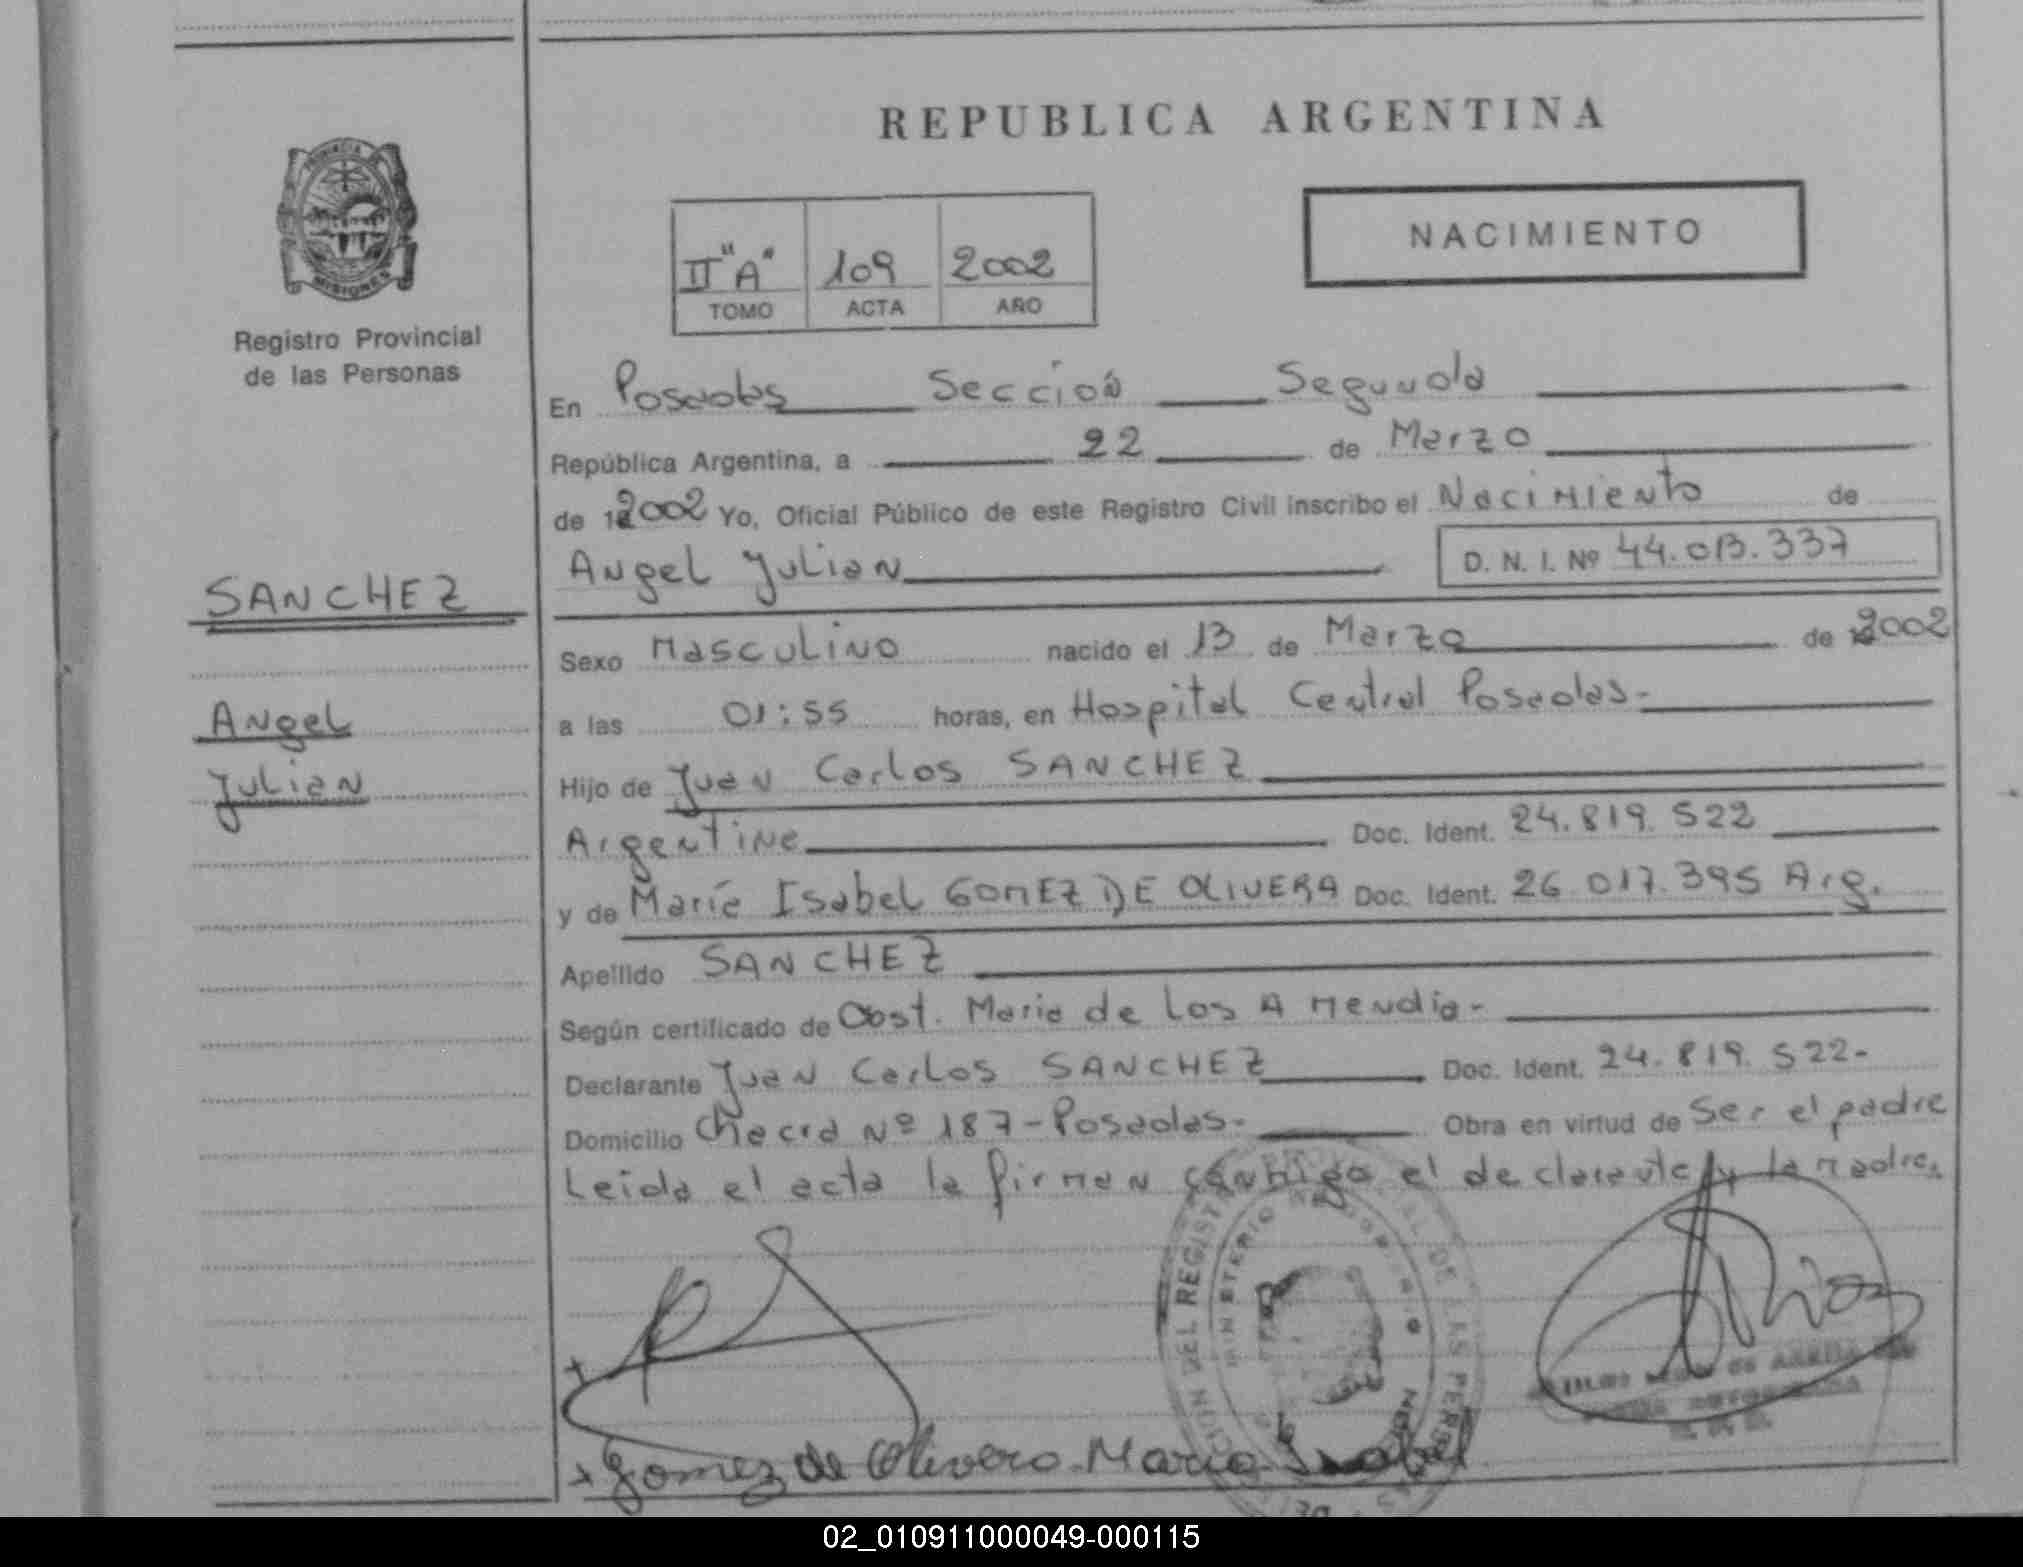 REPUBLICA ARGENTINA
PROVINCIA DE
MISIONES
Registro Provincial
de las Personas
NACIMIENTO
II "A" 109 2002
TOMO ACTA AÑO
En Posadas Sección Segunda
República Argentina, a 22 de Marzo
de 2002 Yo, Oficial Público de este Registro Civil inscribo el Nacimiento de
Angel Julian D. N. I. Nº 44.013.337
SANCHEZ
Angel
Julian
Sexo Masculino nacido el 13 de Marzo de 2002
a las 01:55 horas, en Hospital Central Posadas-
Hijo de Juan Carlos SANCHEZ
Argentina Doc. Ident. 24.819.522
y de María Isabel GOMEZ DE OLIVERA Doc. Ident. 26.017.395 Arg.
Apellido SANCHEZ
Según certificado de Obst. Maria de Los A Mendia-
Declarante Juan Carlos SANCHEZ Doc. Ident. 24.819.522-
Domicilio Chacra Nº 187-Posadas- Obra en virtud de Ser el padre
Leida el acta la firman conmigo el declarante y la madre.
DEL REGISTRO DE LAS PERSONAS
MINISTERIO
Gomez de Olivera Maria Isabel
02_010911000049-000115